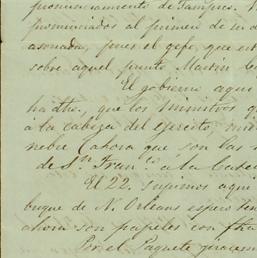 pronunciamiento de Tampico.
pronunciados al primer de su d
asonada, pues el gefe, que est
sobre aquel punto Martin
El gobierno aqui
ha dho, que los Ministros
á la cabeza del ejercito,
nebre (ahora que son las
de Sn. Franco. á la
El 22. supimos aqui
buque de N. Orleans
ahora son papeles con fha
Por el Paquete